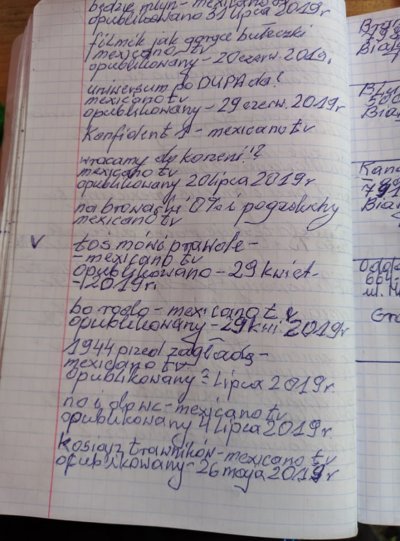 będzie młyn - mexicano tv
opublikowano 31 lipca 2019r
filmik jak gorące bułeczki
mexicano tv
opublikowany - 20 czerw. 2019r
universum po DUPA da?
mexicano tv
opublikowany - 29 czerw. 2019r
Konfident - mexicano tv
wracamy do korzeni!?
mexicano tv
opublikowany 20 lipca 2019r
na browarki 0% i pogaduchy
mexicano tv
v
toś mówi prawdę -
- mexicano tv
opublikowano - 29 kwiet-
- 2019r
- mexicano tv
opublikowany - 29 kwi. 2019r
1944 przed zagładą -
mexicano tv
opublikowany - 2 lipca 2019r
no i - mexicano tv
opublikowany 4 lipca 2019r
Kosiarz trawników - mexicano tv
opublikowany - 26 maja 2019r
Biał
500
Biał
Kana
791
Biał
664
ul. M